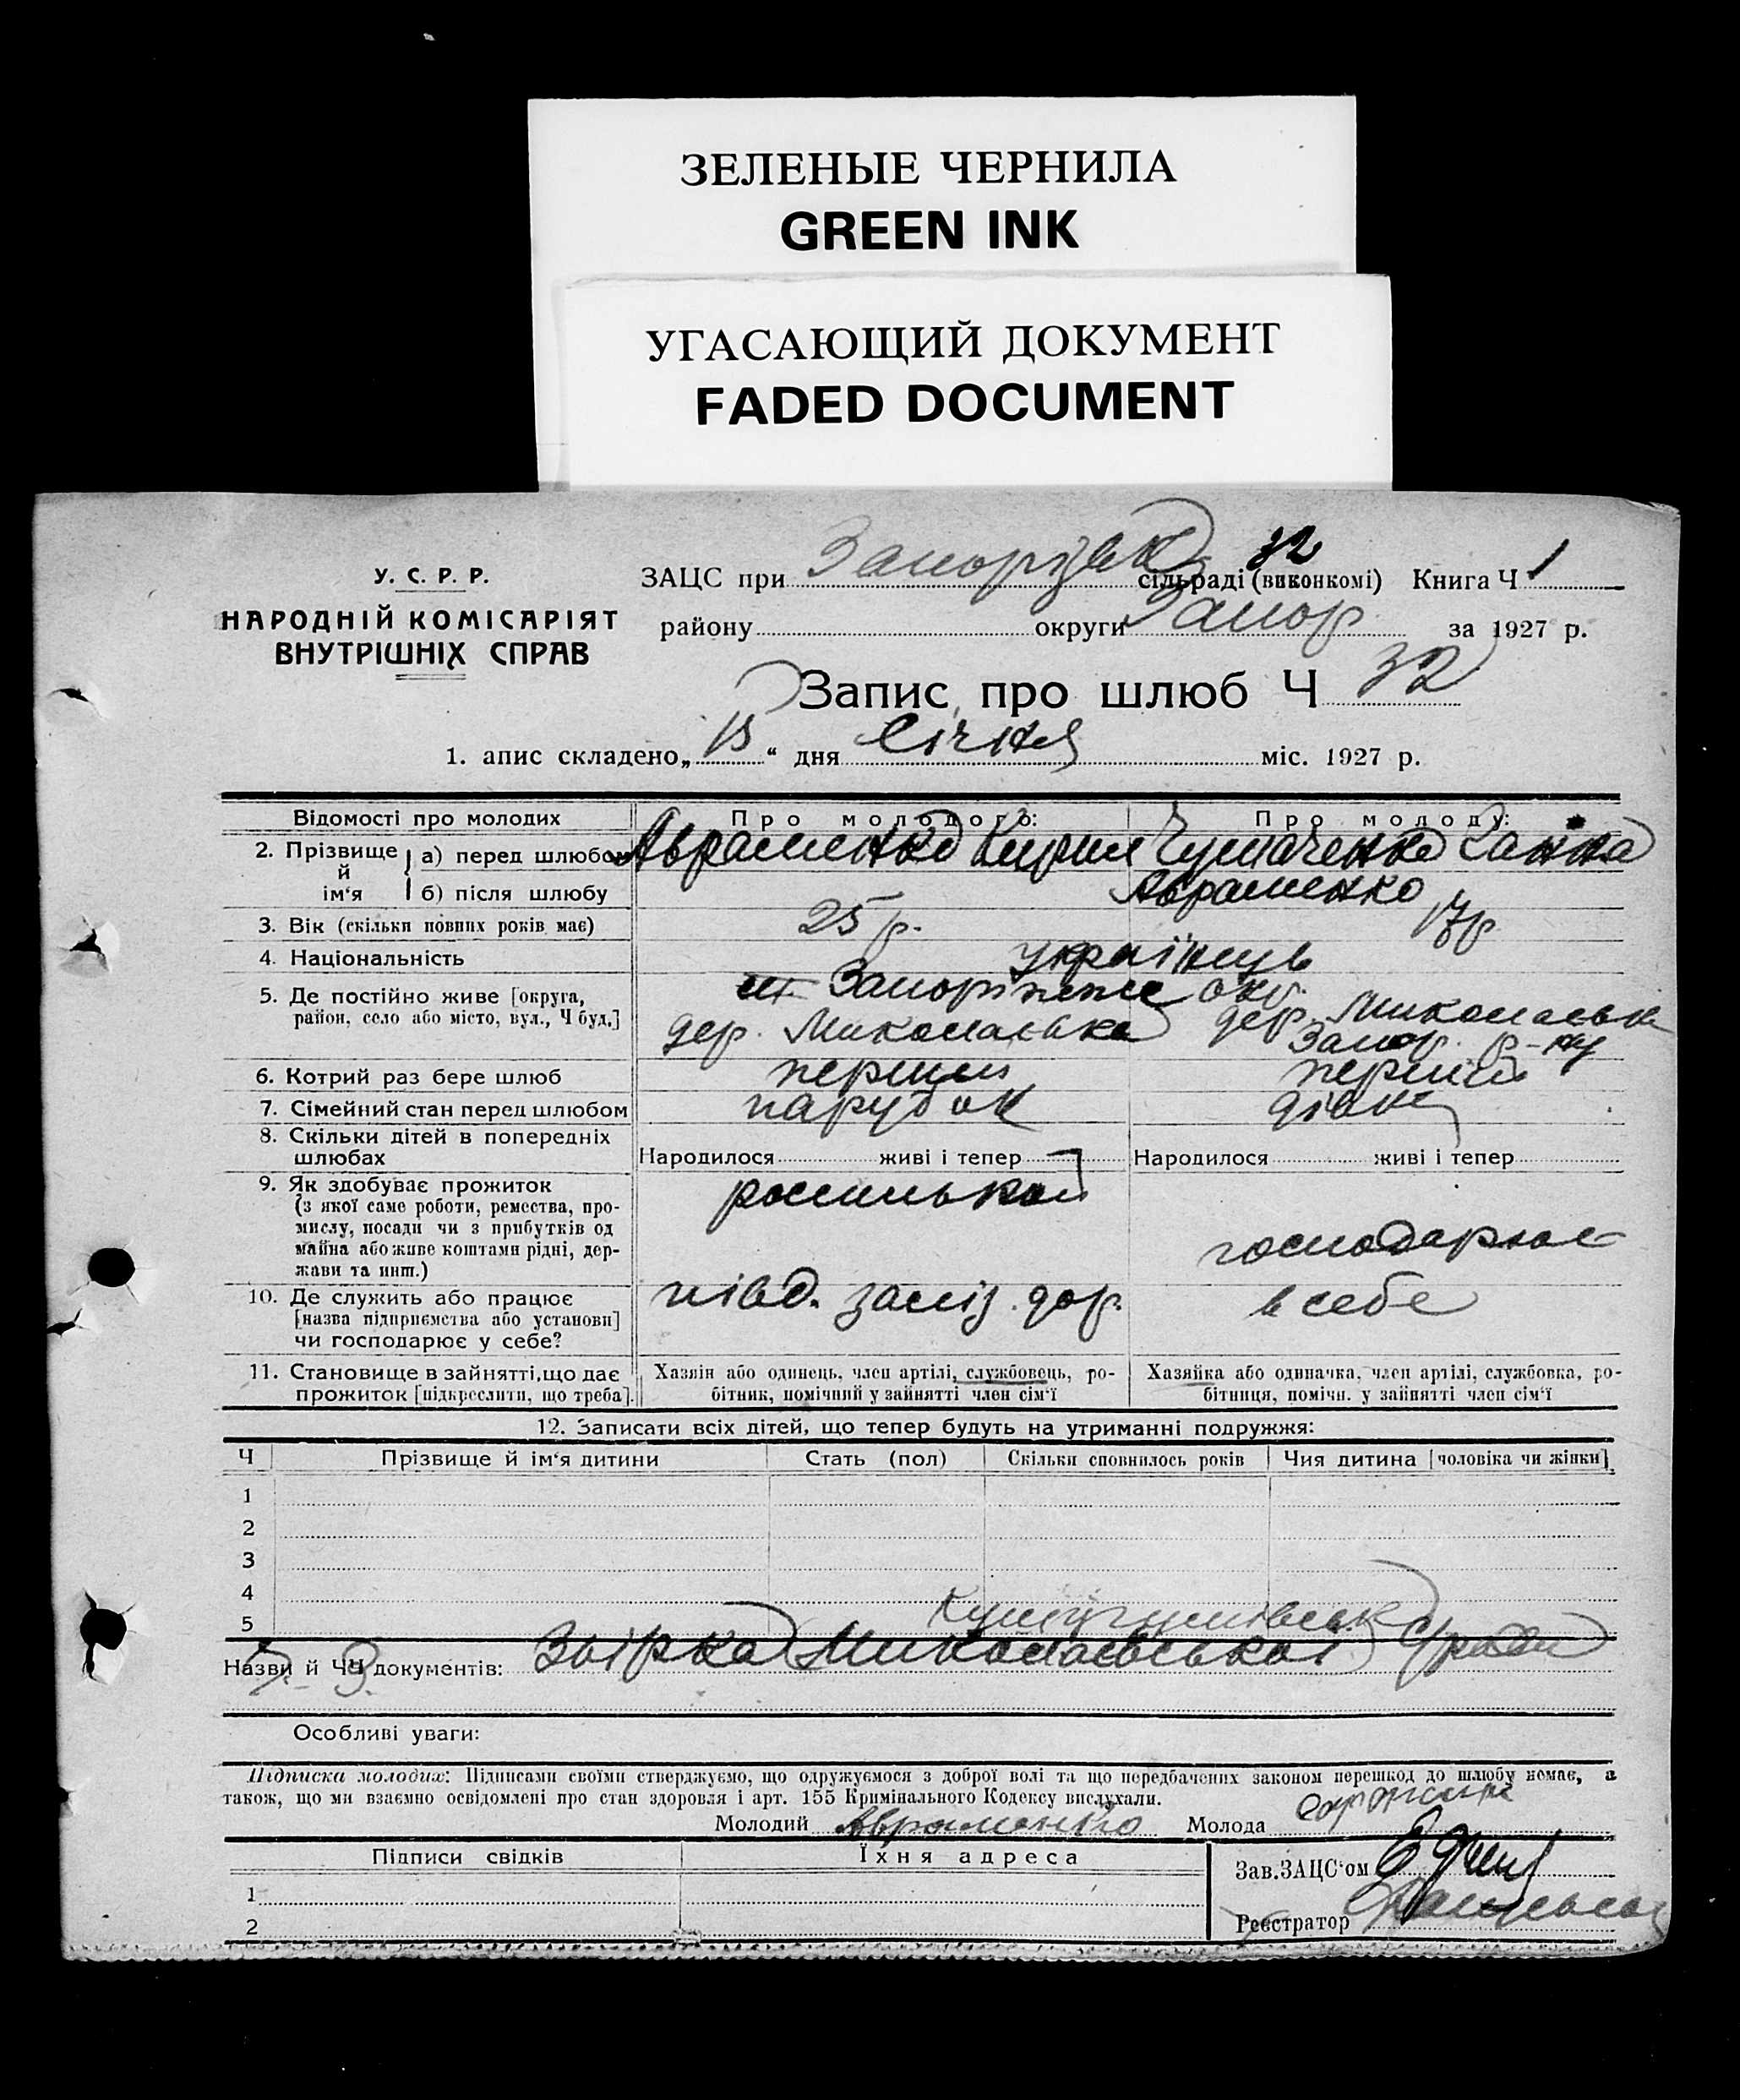 ЗЕЛЕНЫЕ ЧЕРНИЛА
GREEN INK
УГАСАЮЩИЙ ДОКУМЕНТ
FADED DOCUMENT
У. С. Р. Р.
НАРОДНІЙ КОМІСАРІЯТ
ВНУТРІШНІХ СПРАВ
32
ЗАЦС при сільраді (виконкомі) Книга Ч 1
району округи Запор за 1927 р.
Запис про шлюб Ч 32
1. апис складено „15“ дня Січня міс. 1927 р.
Відомості про молодих Про молодого: Про молоду:
2. Прізвище й ім‘я а) перед шлюбом Авраменко Кирил Чумаченко Ганна
б) після шлюбу Авраменко
3. Вік (скільки повних років має) 25 р. 17 р.
4. Національність українць
5. Де постійно живе [округа, район, село або місто, вул., Ч буд.] Запоріжже окр.
дер. Миколаєвка дер. Миколаєвк
Запор. р-ну
6. Котрий раз бере шлюб перший перший
7. Сімейний стан перед шлюбом парубок дівка
8. Скільки дітей в попередніх шлюбах Народилося живі і тепер Народилося живі і тепер
9. Як здобуває прожиток
(з якої саме роботи, ремества, про-
мислу, посади чи з прибутків од
майна або живе коштами рідні, дер-
жави та инш.) господарює
10. Де служить або працює півд. заліз. дор. в себе
[назва підприємства або установи]
чи господарює у себе?
11. Становище в зайнятті, що дає Хазяін або одинець, член артілі, службовець, ро- Хазяйка або одиначка, член артілі, службовка, ро-
прожиток [підкреслити, що треба]. бітник, помічний у зайнятті член сім‘ї бітниця, помічн. у зайнятті член сім‘ї
12. Записати всіх дітей, що тепер будуть на утриманні подружжя:
Ч Прізвище й ім‘я дитини Стать (пол) Скільки сповнилось років Чия дитина [чоловіка чи жінки]
1
2
3
4
5
Назви й ЧЧ документів: Миколаєвської с/ради
Особливі уваги:
Підписка молодих: Підписами своїми стверджуємо, що одружуємося з доброї волі та що передбачених законом перешкод до шлюбу немає, а
також, що ми взаємно освідомлені про стан здоровля і арт. 155 Кримінального Кодексу вислухали.
Молодий Авраменко Молода
Підписи свідків Їхня адреса Зав. ЗАЦС‘ом
1
2 Реєстратор